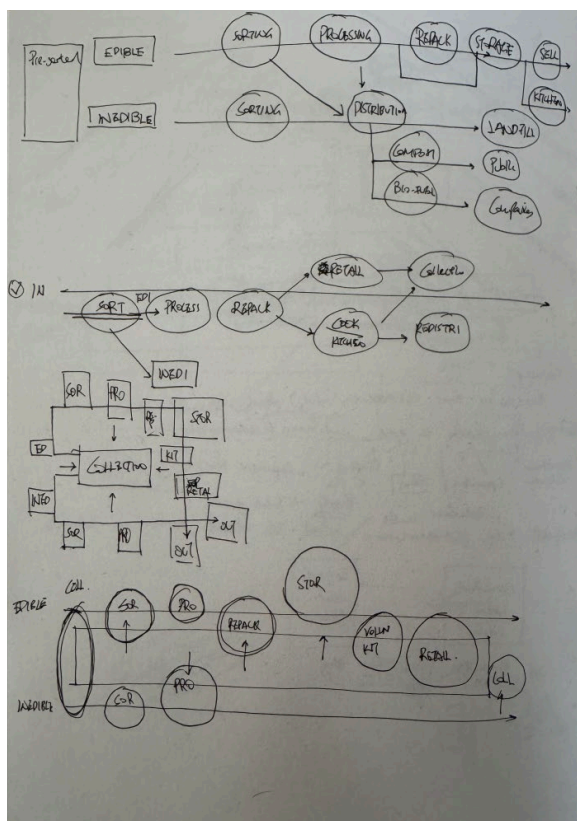 Pre-sorted
EDIBLE
SORTING
PROCESSING
REPACK
STORAGE
SELL
KITCHEN
INEDIBLE
SORTING
DISTRIBUTION
LANDFILL
COMPOST
Public
BIO-FUEL
Companies
IN
SORT
EDI
PROCESS
REPACK
RETAIL
Collection
COOK
KITCHEN
REDISTRI
INEDI
SOR
PRO
RE-
STOR
ED
COLLECTION
KIT
RETAIL
INED
SOR
PRO
OUT
OUT
COLL.
EDIBLE
SOR
PRO
REPACK
STOR
VOLUN
KIT
RETAIL.
COLL
INEDIBLE
SOR
PRO